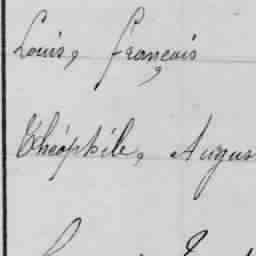 Louis, François
Théophile, Augus